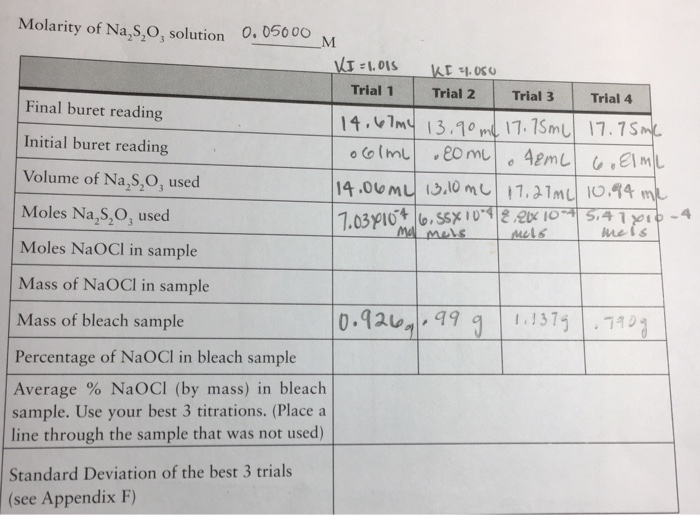 Molarity of Na₂S₂O₃ solution 0.05000 M
KI = 1.015 KI = 1.050
Trial 1 Trial 2 Trial 3 Trial 4
Final buret reading 14.67mL 13.90mL 17.75mL 17.75mL
Initial buret reading .61mL .80mL .48mL 6.81mL
Volume of Na₂S₂O₃ used 14.06mL 13.10mL 17.27mL 10.94mL
Moles Na₂S₂O₃ used 7.03x10⁻⁴ mol 6.55x10⁻⁴ mols x10⁻⁴ mols 5.47x10⁻⁴ mols
Moles NaOCl in sample
Mass of NaOCl in sample
Mass of bleach sample 0.926g .99g 1.137g .790g
Percentage of NaOCl in bleach sample
Average % NaOCl (by mass) in bleach
sample. Use your best 3 titrations. (Place a
line through the sample that was not used)
Standard Deviation of the best 3 trials
(see Appendix F)